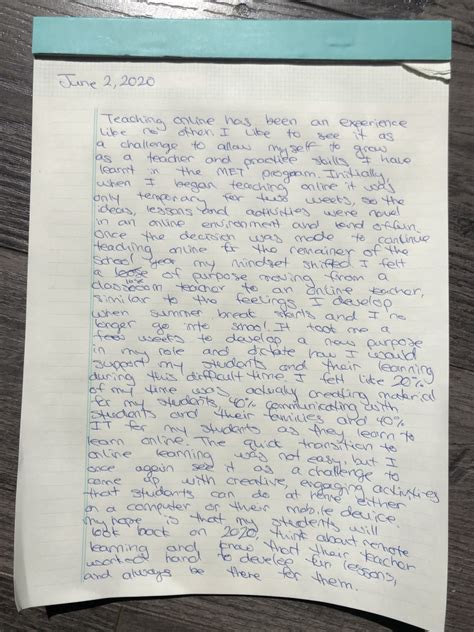 June 2, 2020
Teaching online has been an experience
like no other. I like to see it as
a challenge to allow myself to grow
as a teacher and practice skills I have
learnt in the MET program. Initially,
when I began teaching online it was
only temporary for two weeks, so the
ideas, lessons and activities were novel
in an online environment and kind of fun.
Once the decision was made to continue
teaching online for the remainder of the
school year my mindset shifted. I felt
a lose of purpose moving from a
classroom teacher to an online teacher,
similar to the feelings I develop
when summer break starts and I no
longer go into school. It took me a
few weeks to develop a new purpose
in my role and dictate how I would
support my students and their learning
during this difficult time. I felt like 20%
of my time was actually creating material
for my students, 40% communicating with
students and their families and 40%
IT for my students as they learn to
learn online. The quick transition to
online learning was not easy, but I
once again see it as a challenge to
come up with creative, engaging activities
that students can do at home either
on a computer or their mobile device.
My hope is that my students will
look back on 2020, think about remote
learning and know that their teacher
worked hard to develop fun lessons,
and always be there for them.